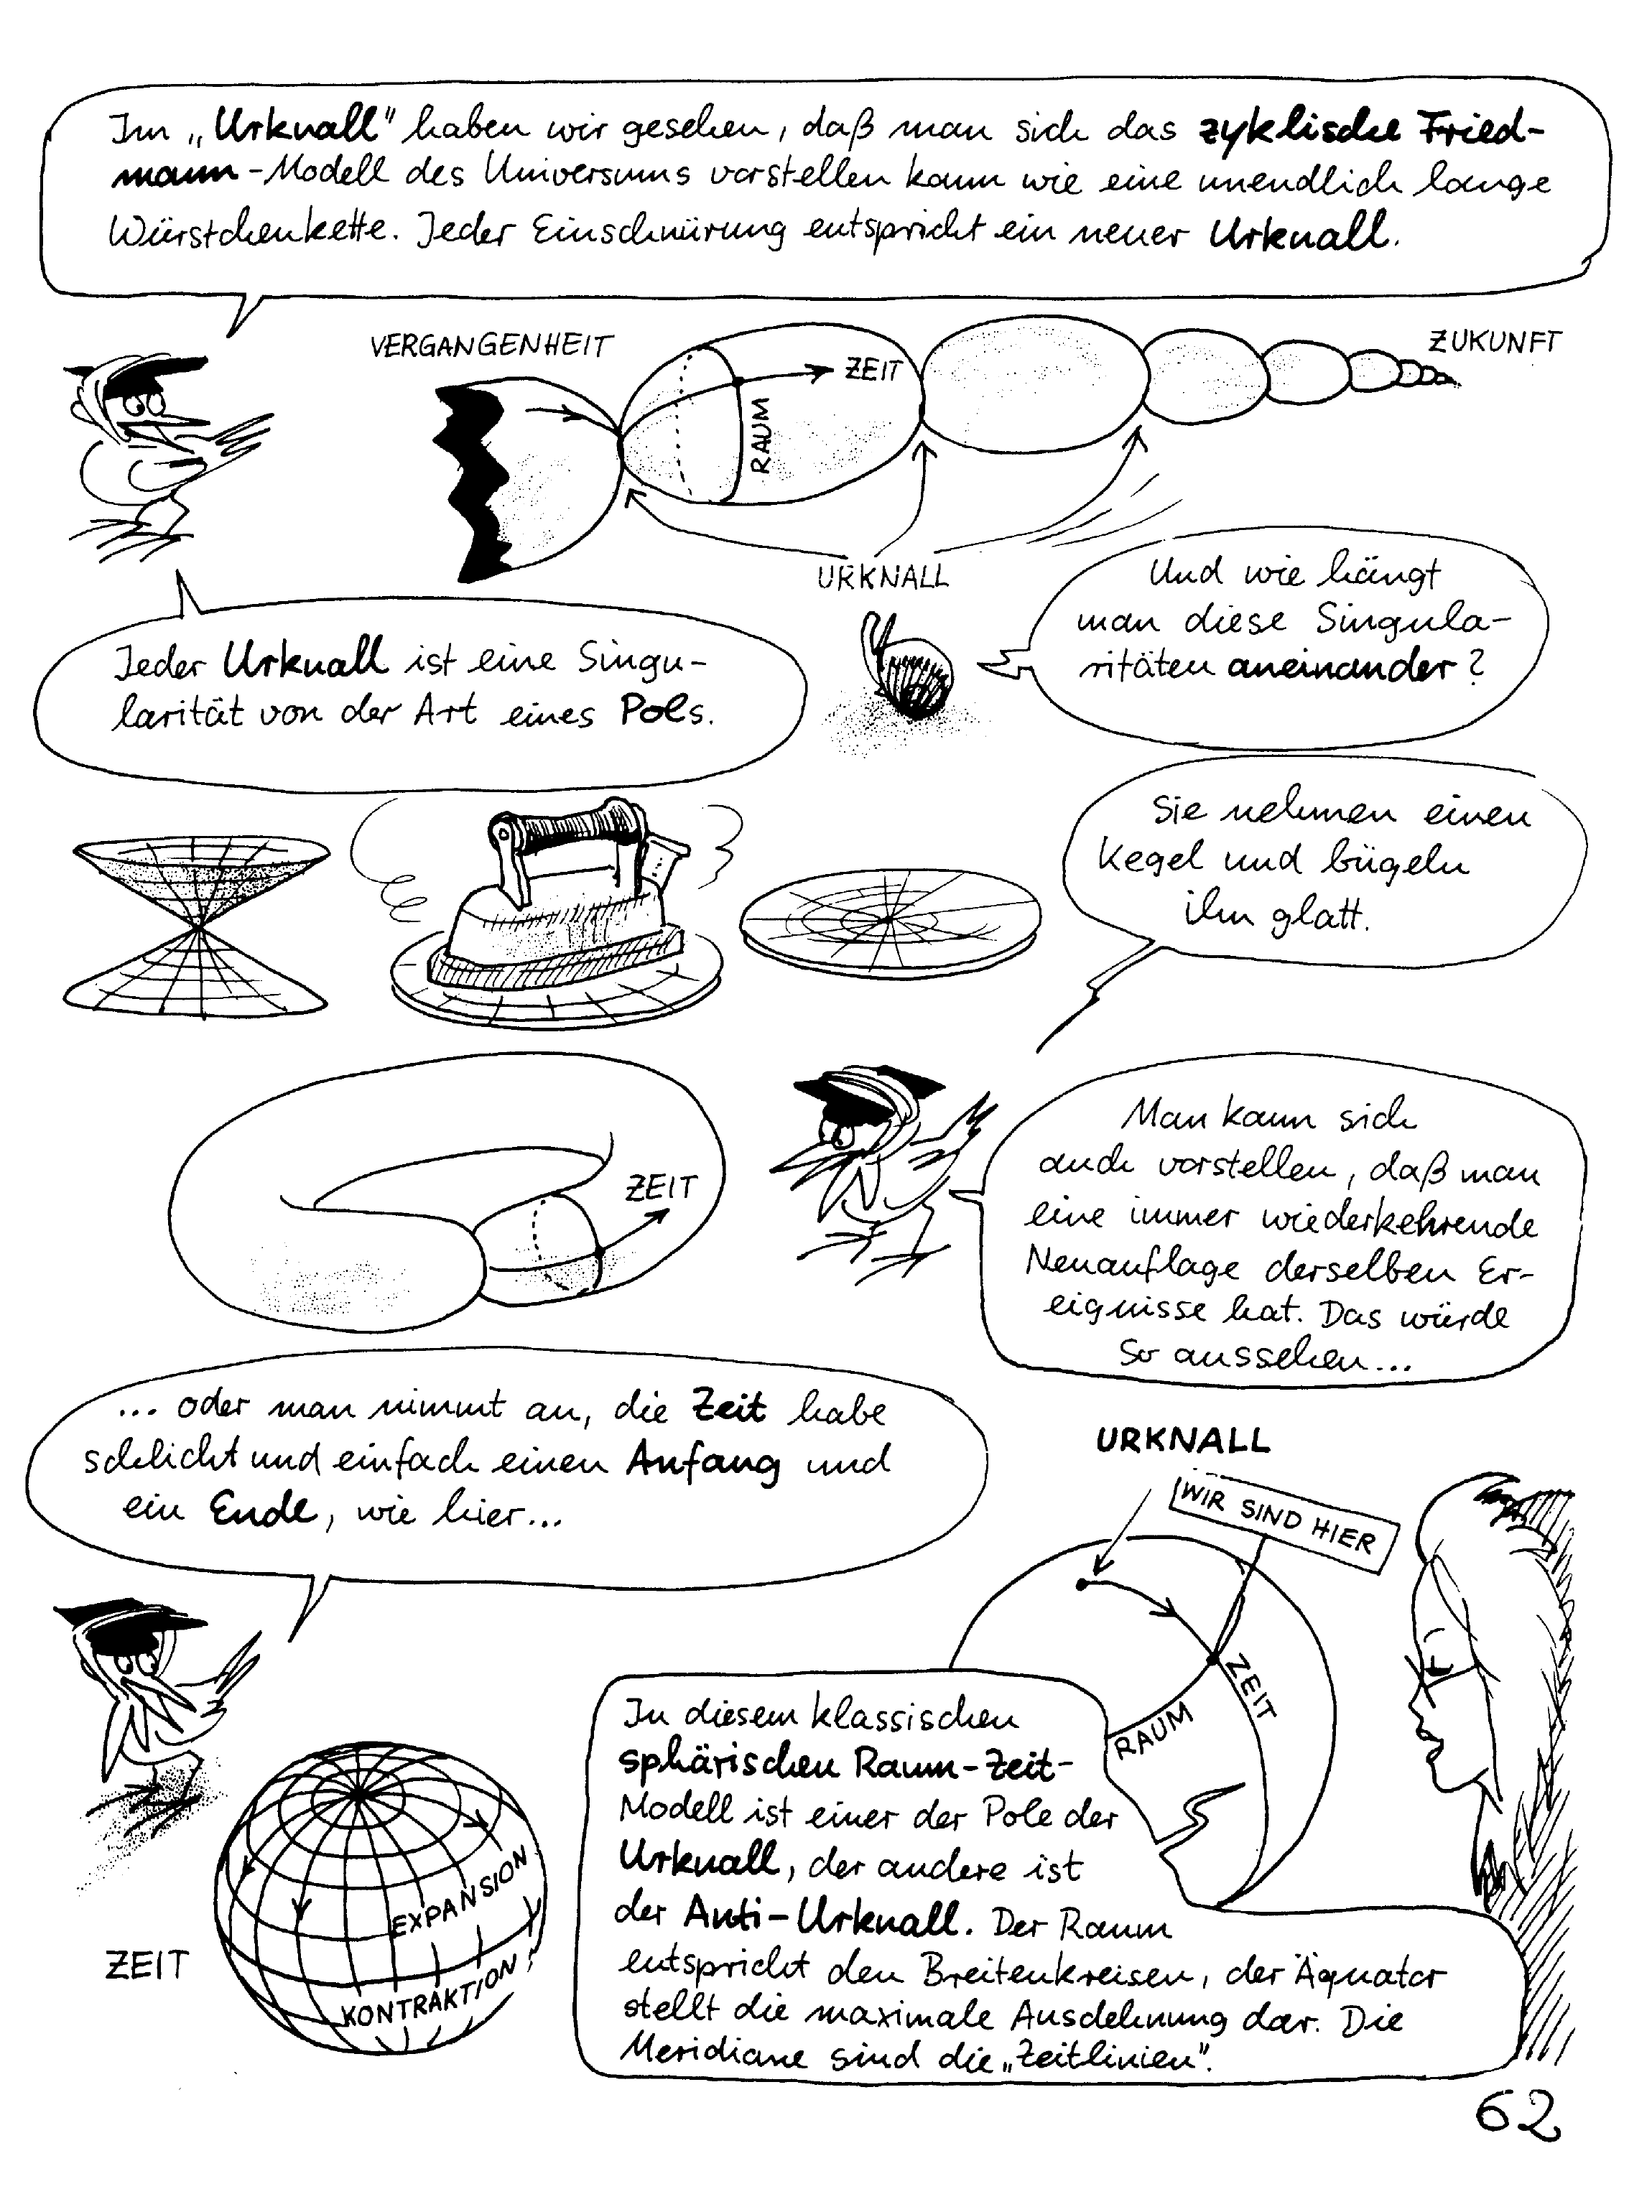 Im „Urknall" haben wir gesehen, daß man sich das zyklische Fried-
mann-Modell des Universums vorstellen kann wie eine unendlich lange
Würstchenkette. Jeder Einschnürung entspricht ein neuer Urknall.
VERGANGENHEIT
ZUKUNFT
ZEIT
RAUM
URKNALL
Und wie hängt
man diese Singula-
ritäten aneinander?
Jeder Urknall ist eine Singu-
larität von der Art eines Pols.
Sie nehmen einen
Kegel und bügeln
ihn glatt.
ZEIT
Man kann sich
auch vorstellen, daß man
eine immer wiederkehrende
Neuauflage derselben Er-
eignisse hat. Das würde
so aussehen...
... oder man nimmt an, die Zeit habe
schlicht und einfach einen Anfang und
ein Ende, wie hier...
URKNALL
WIR SIND HIER
ZEIT
RAUM
In diesem klassischen
sphärischen Raum-Zeit-
Modell ist einer der Pole der
Urknall, der andere ist
der Anti-Urknall. Der Raum
entspricht den Breitenkreisen, der Äquator
stellt die maximale Ausdehnung dar. Die
Meridiane sind die „Zeitlinien".
EXPANSION
KONTRAKTION
ZEIT
62